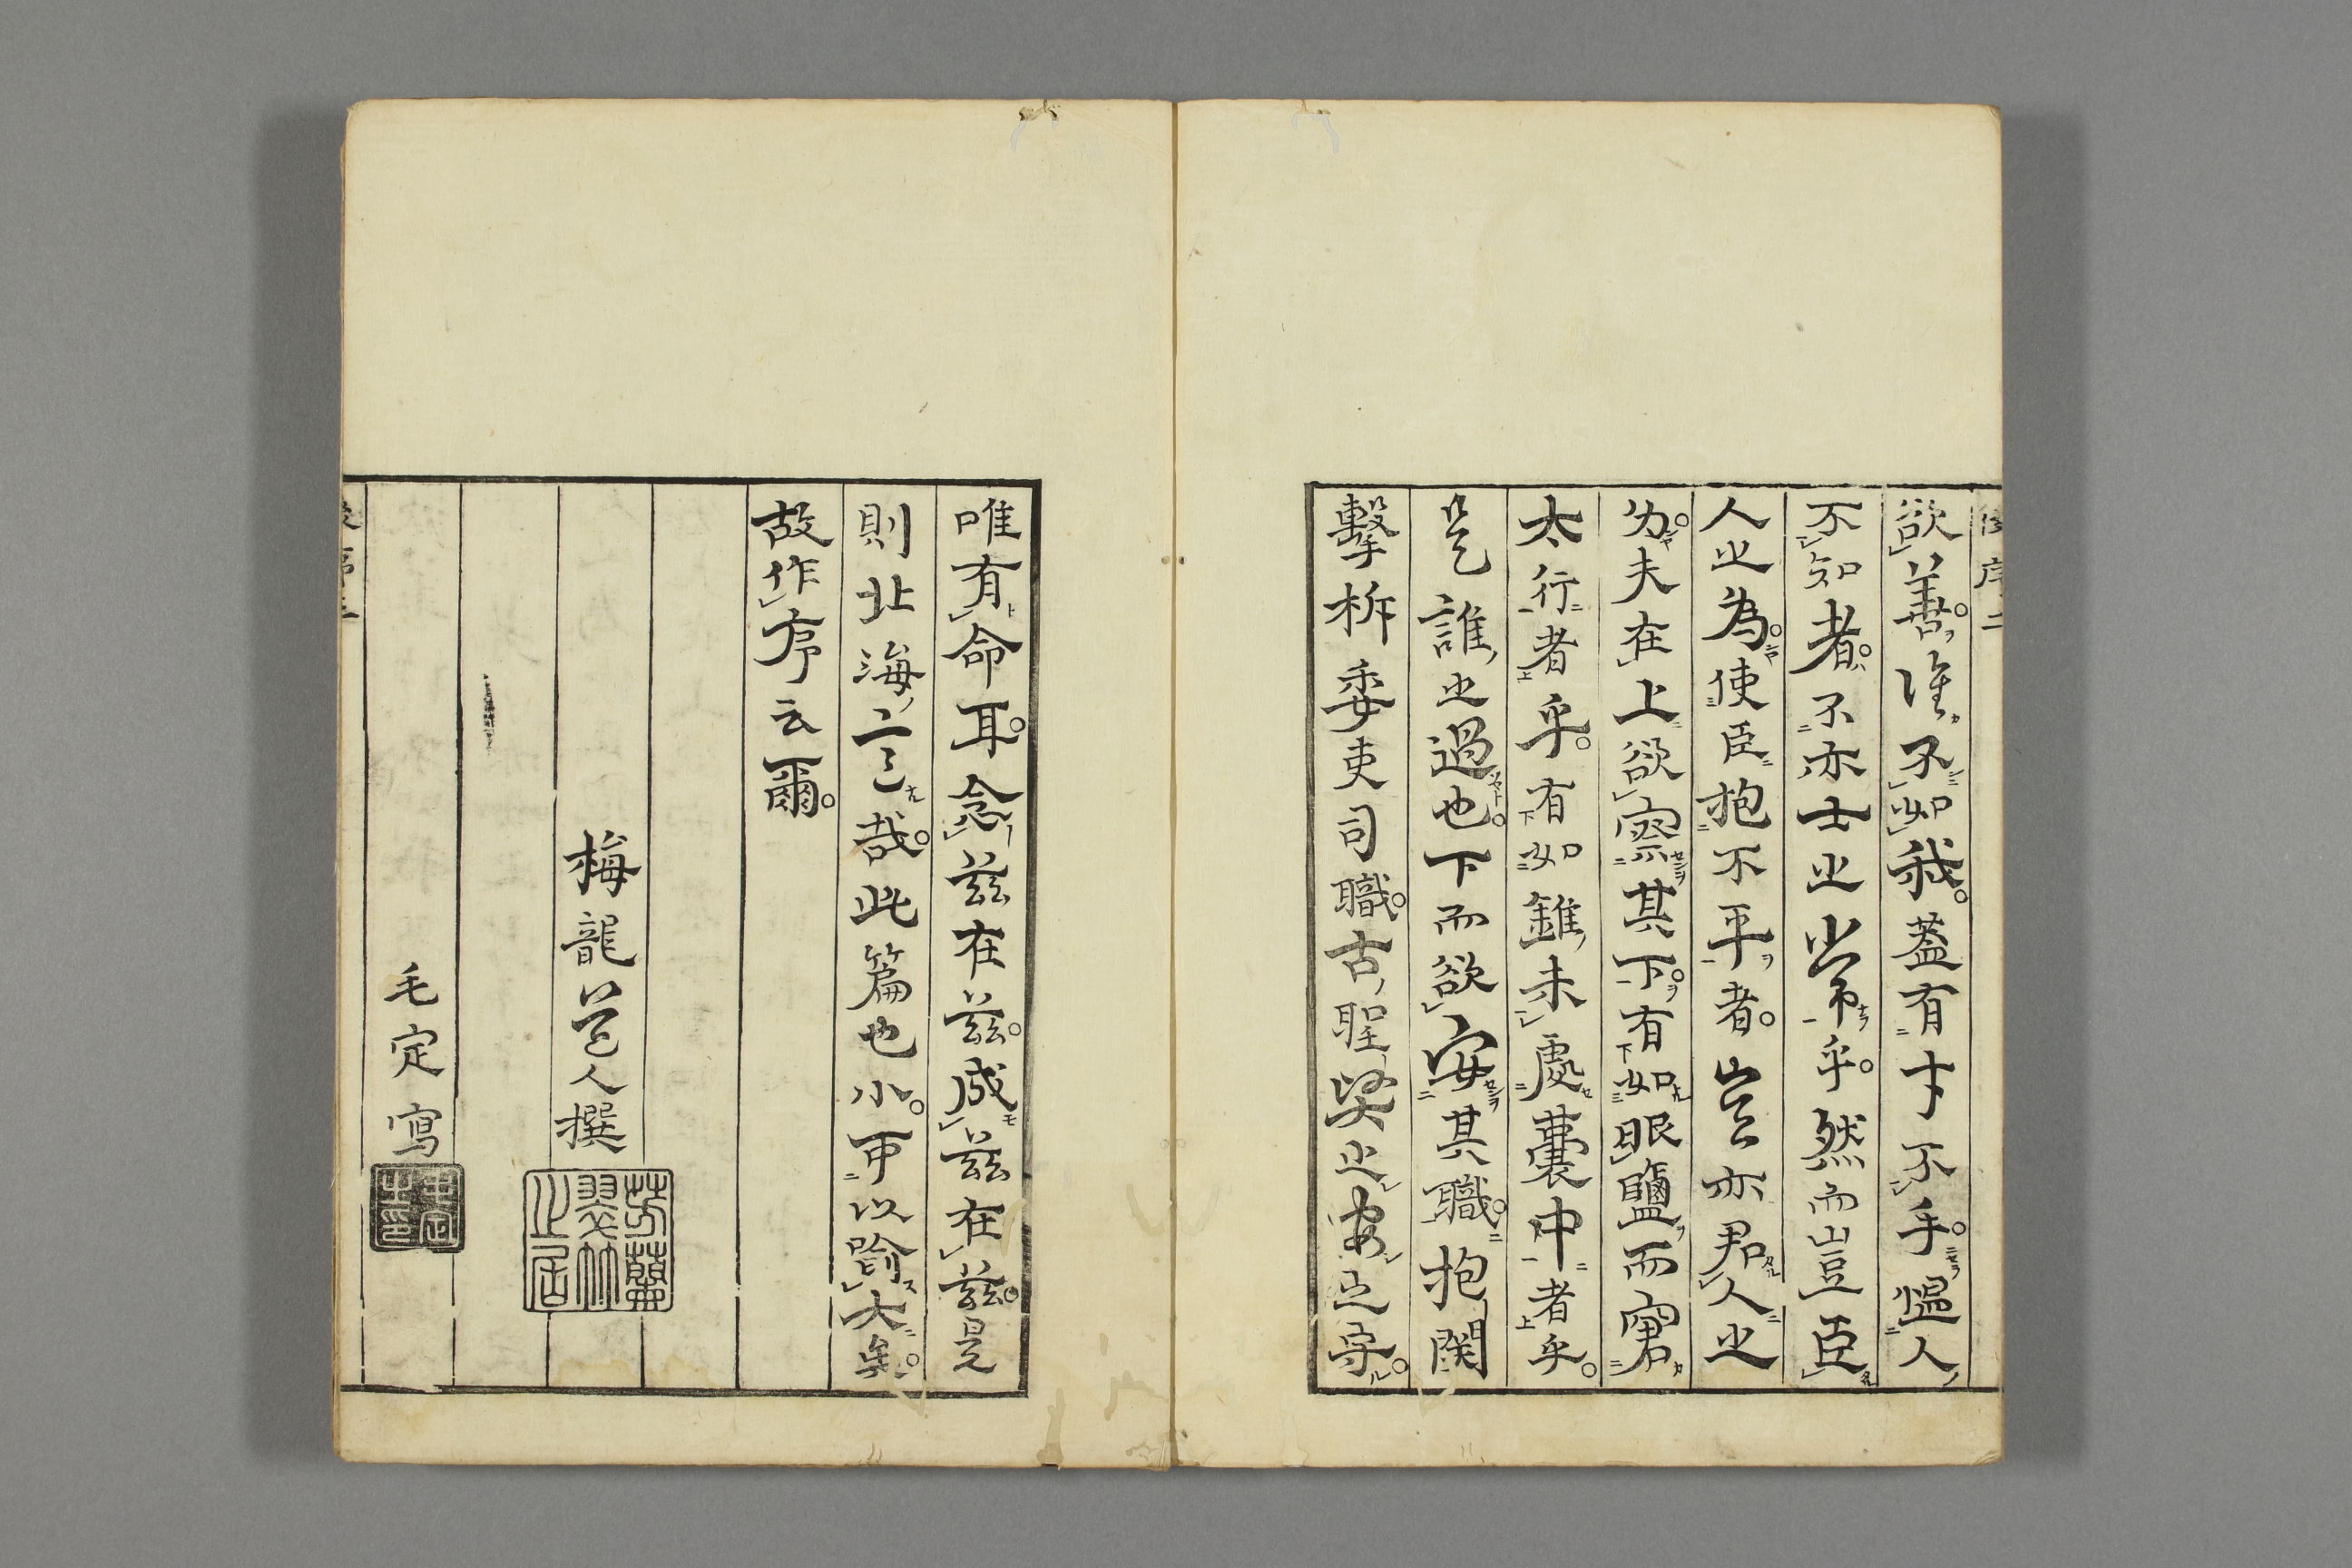 欲善誰不如我蓋有才不乎慍人
不知者不亦士之常乎然而豈臣
人之為使臣抱不平者豈亦君人之
為夫在上欲察其下有如眼鹽而窘
太行者乎有如錐未處囊中者乎
是誰之過也下而欲安其職抱関
擊柝委吏司職古聖賢之安之守
唯有命耳念茲在茲成茲在茲是
則北海之言哉此篇也小可以喻大矣
故作序云爾
梅龍道人撰
毛定寫